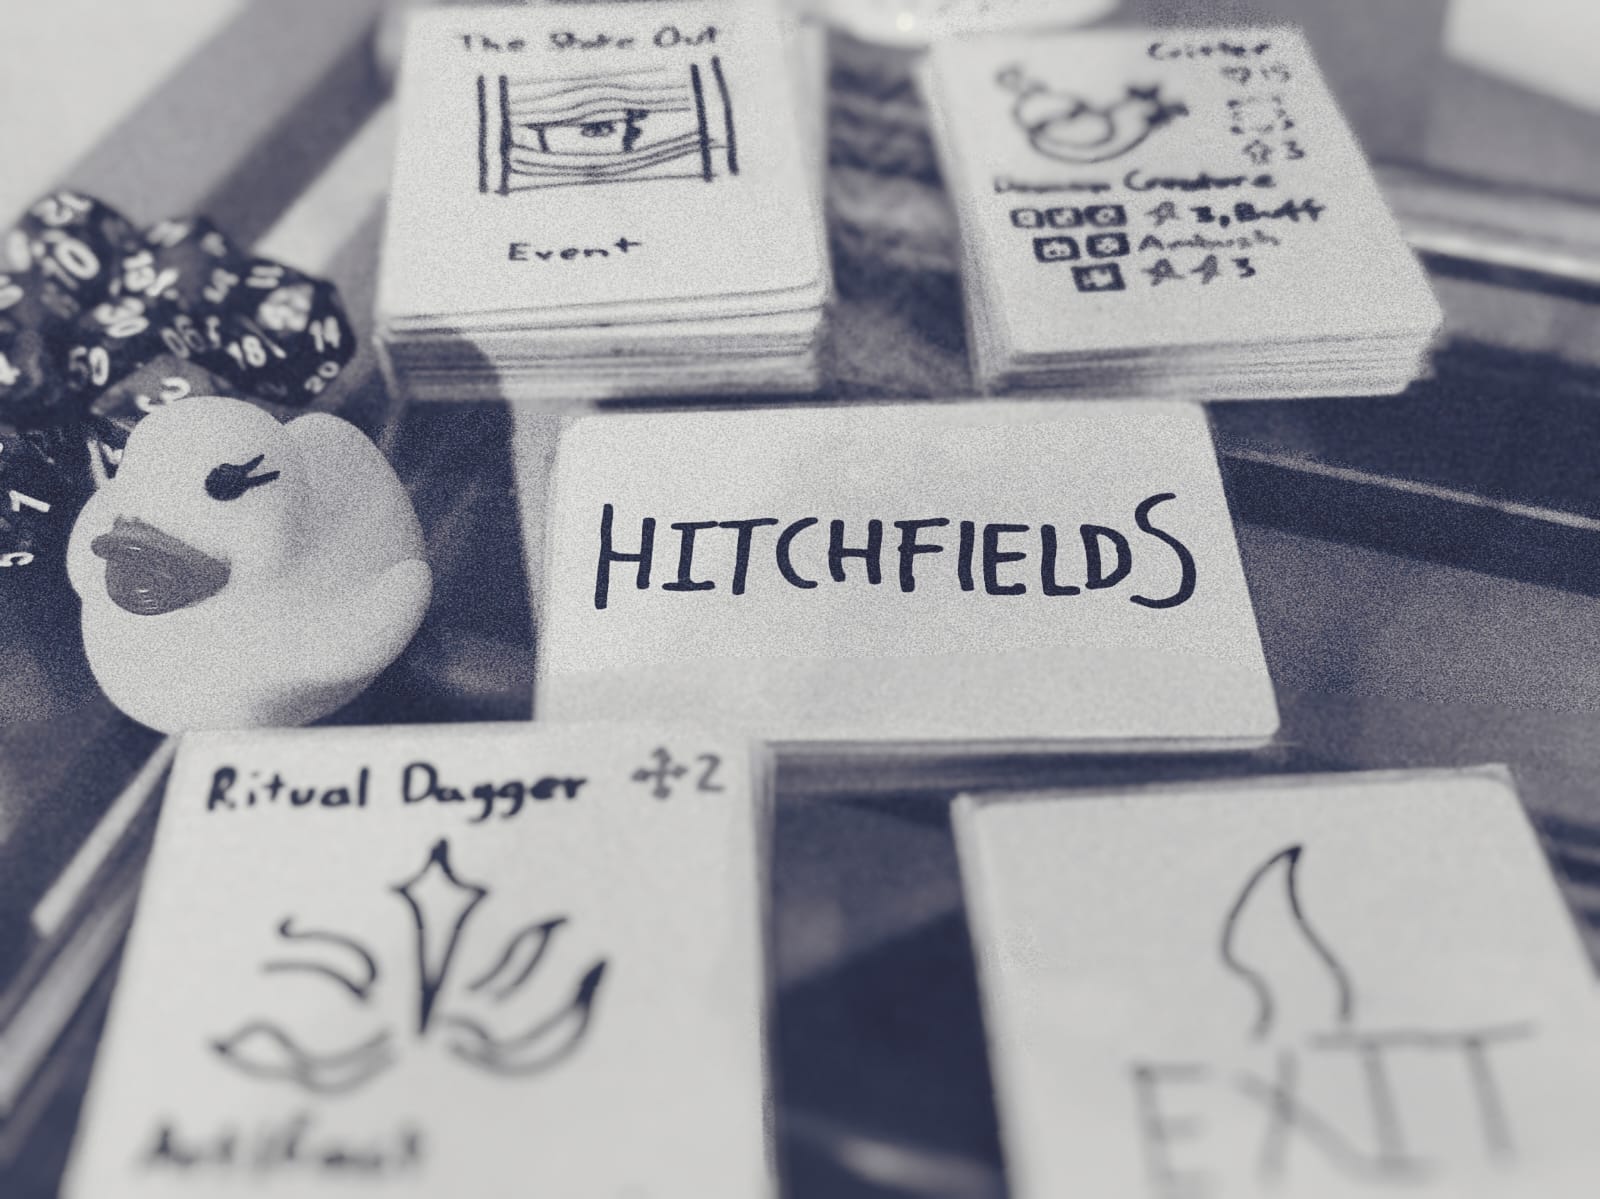 The Stake Out
Event
Critter
15
3
Creature
3, Buff
Ambush
3
10
50
18
14
20
7
5
HITCHFIELDS
Ritual Dagger 2
Artifact
EXIT